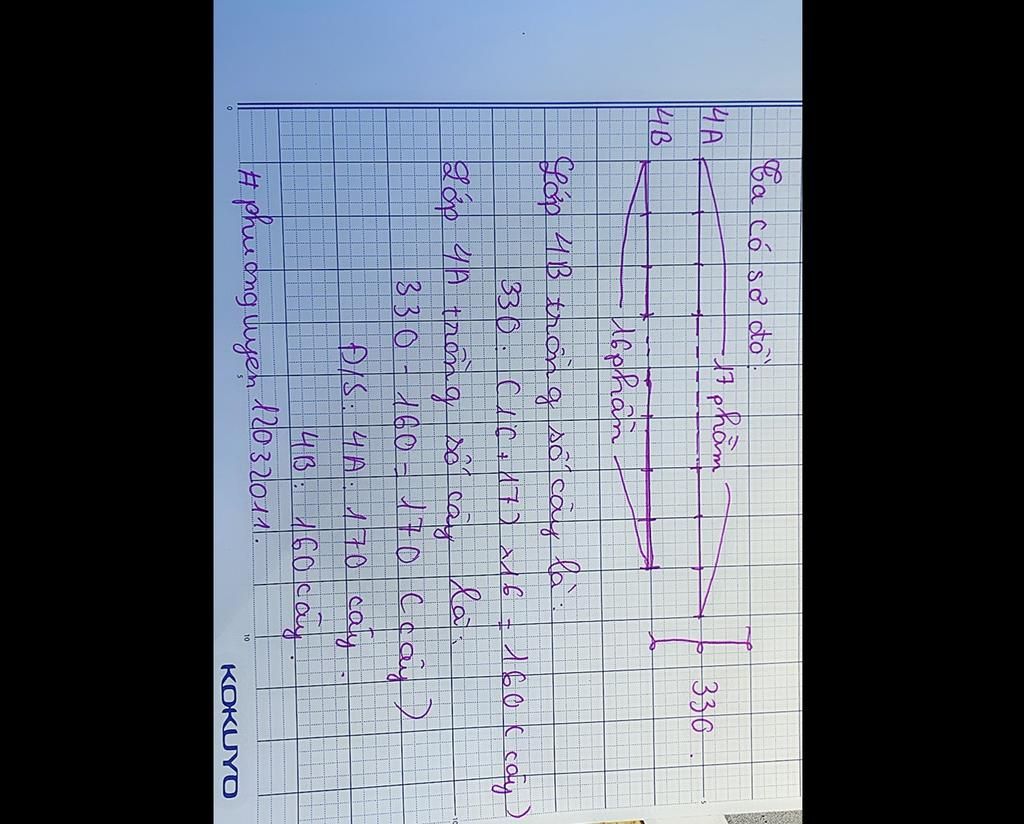 Ta có sơ đồ:
17 phần
4A
330.
4B
16 phần
Lớp 4B trồng số cây là:
330 : (16 + 17) x 16 = 160 (cây)
Lớp 4A trồng số cây là:
330 - 160 = 170 (cây)
Đ/S: 4A: 170 cây.
4B: 160 cây.
# phuonguyen 12032011.
KOKUYO
0 5 10
5
10